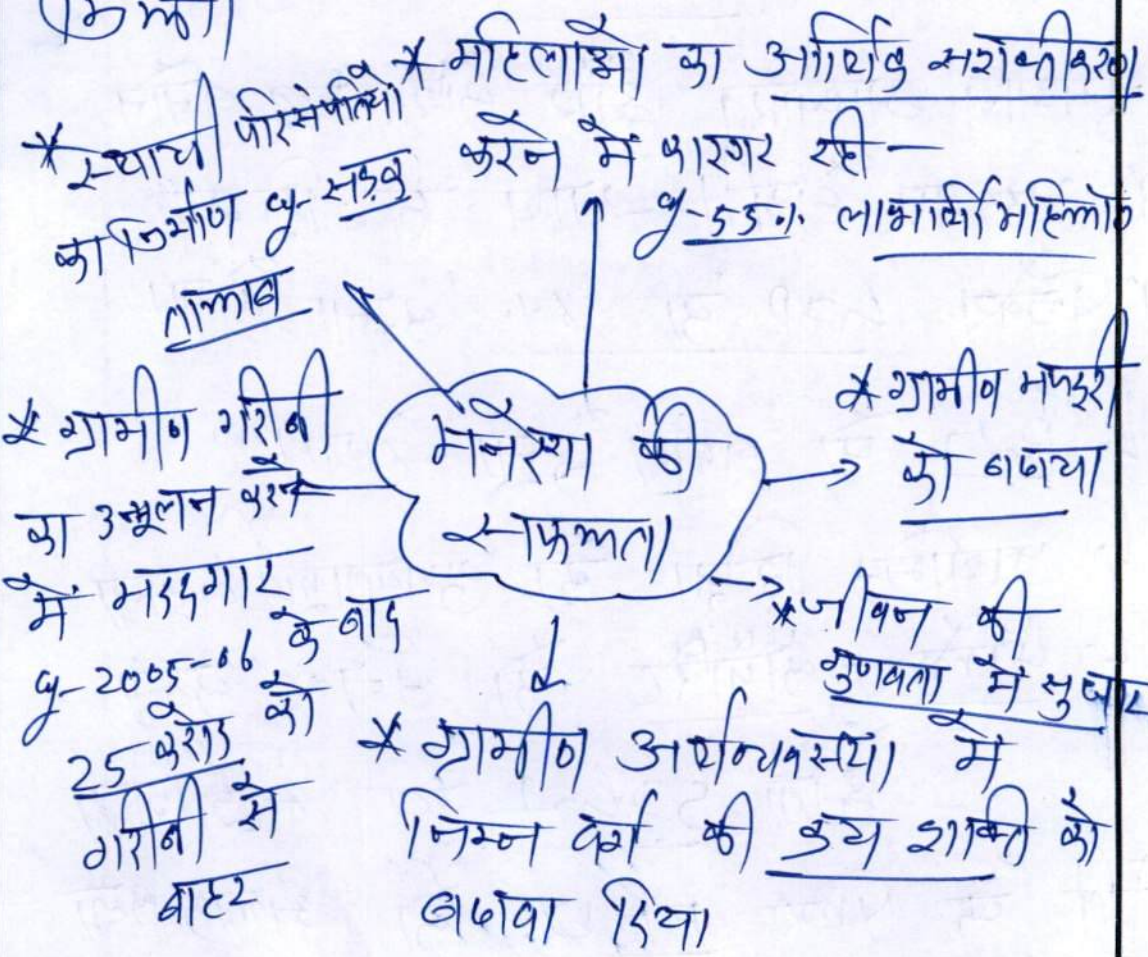 किया।
* महिलाओं का आर्थिक सशक्तीकरण
करने में कारगर रही —
eg- 55% लाभार्थी महिलाएं
* स्थायी परिसंपत्तियों
का निर्माण eg- सड़क
तालाब
* ग्रामीण गरीबी
का उन्मूलन करने
में मददगार
eg- 2005-06 के बाद
25 करोड़ को
गरीबी से
बाहर
मनरेगा की
सफलता
* ग्रामीण मजदूरी
को बढाया
* जीवन की
गुणवत्ता में सुधार
* ग्रामीण अर्थव्यवस्था में
निम्न वर्ग की क्रय शक्ति को
बढावा दिया